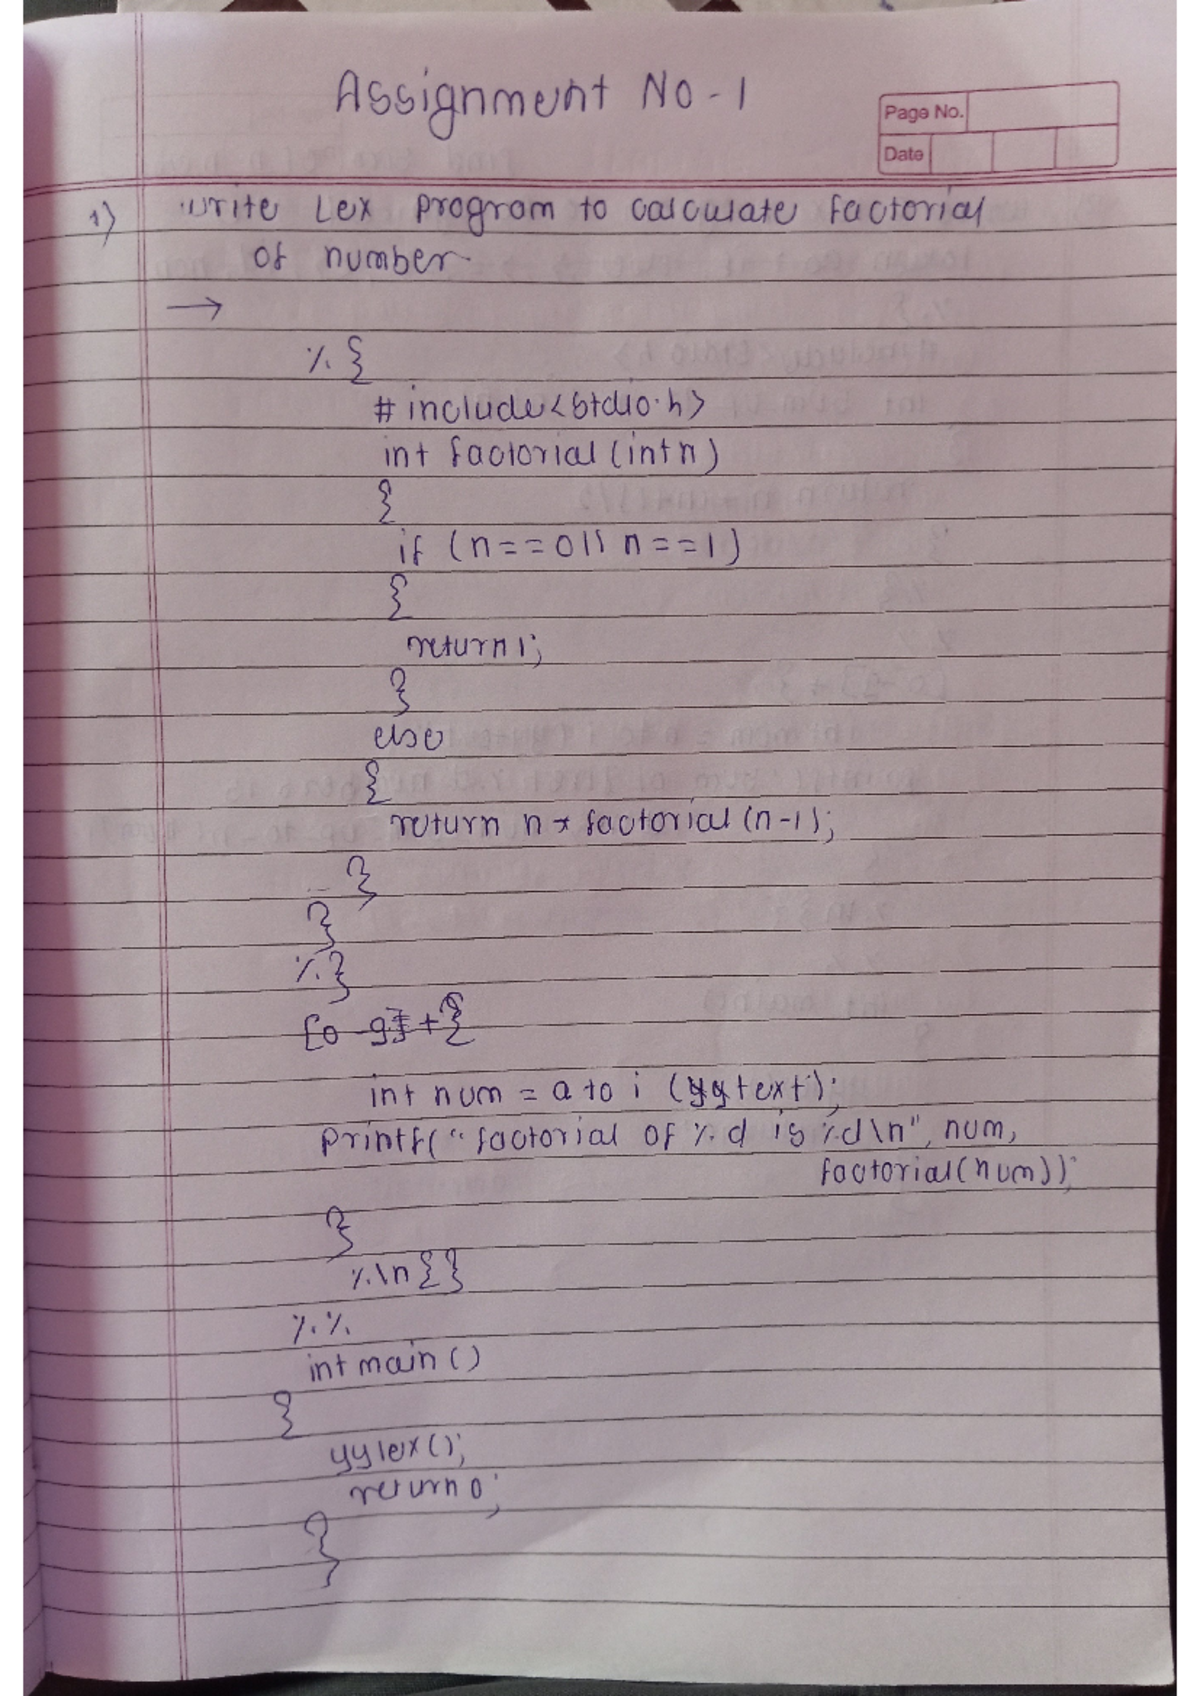 Assignment No - 1
Page No.
Date
1) Write Lex program to calculate factorial
of number.
→
%{
#include<stdio.h>
int factorial (int n)
{
if (n==0|| n==1)
{
return 1;
}
else
{
return n * factorial (n-1);
}
}
%}
[0-9]+{
int num = atoi (yytext);
printf(" factorial of %d is %d\n", num,
factorial(num));
}
%\n{}
%%
int main ()
{
yylex();
return 0;
}